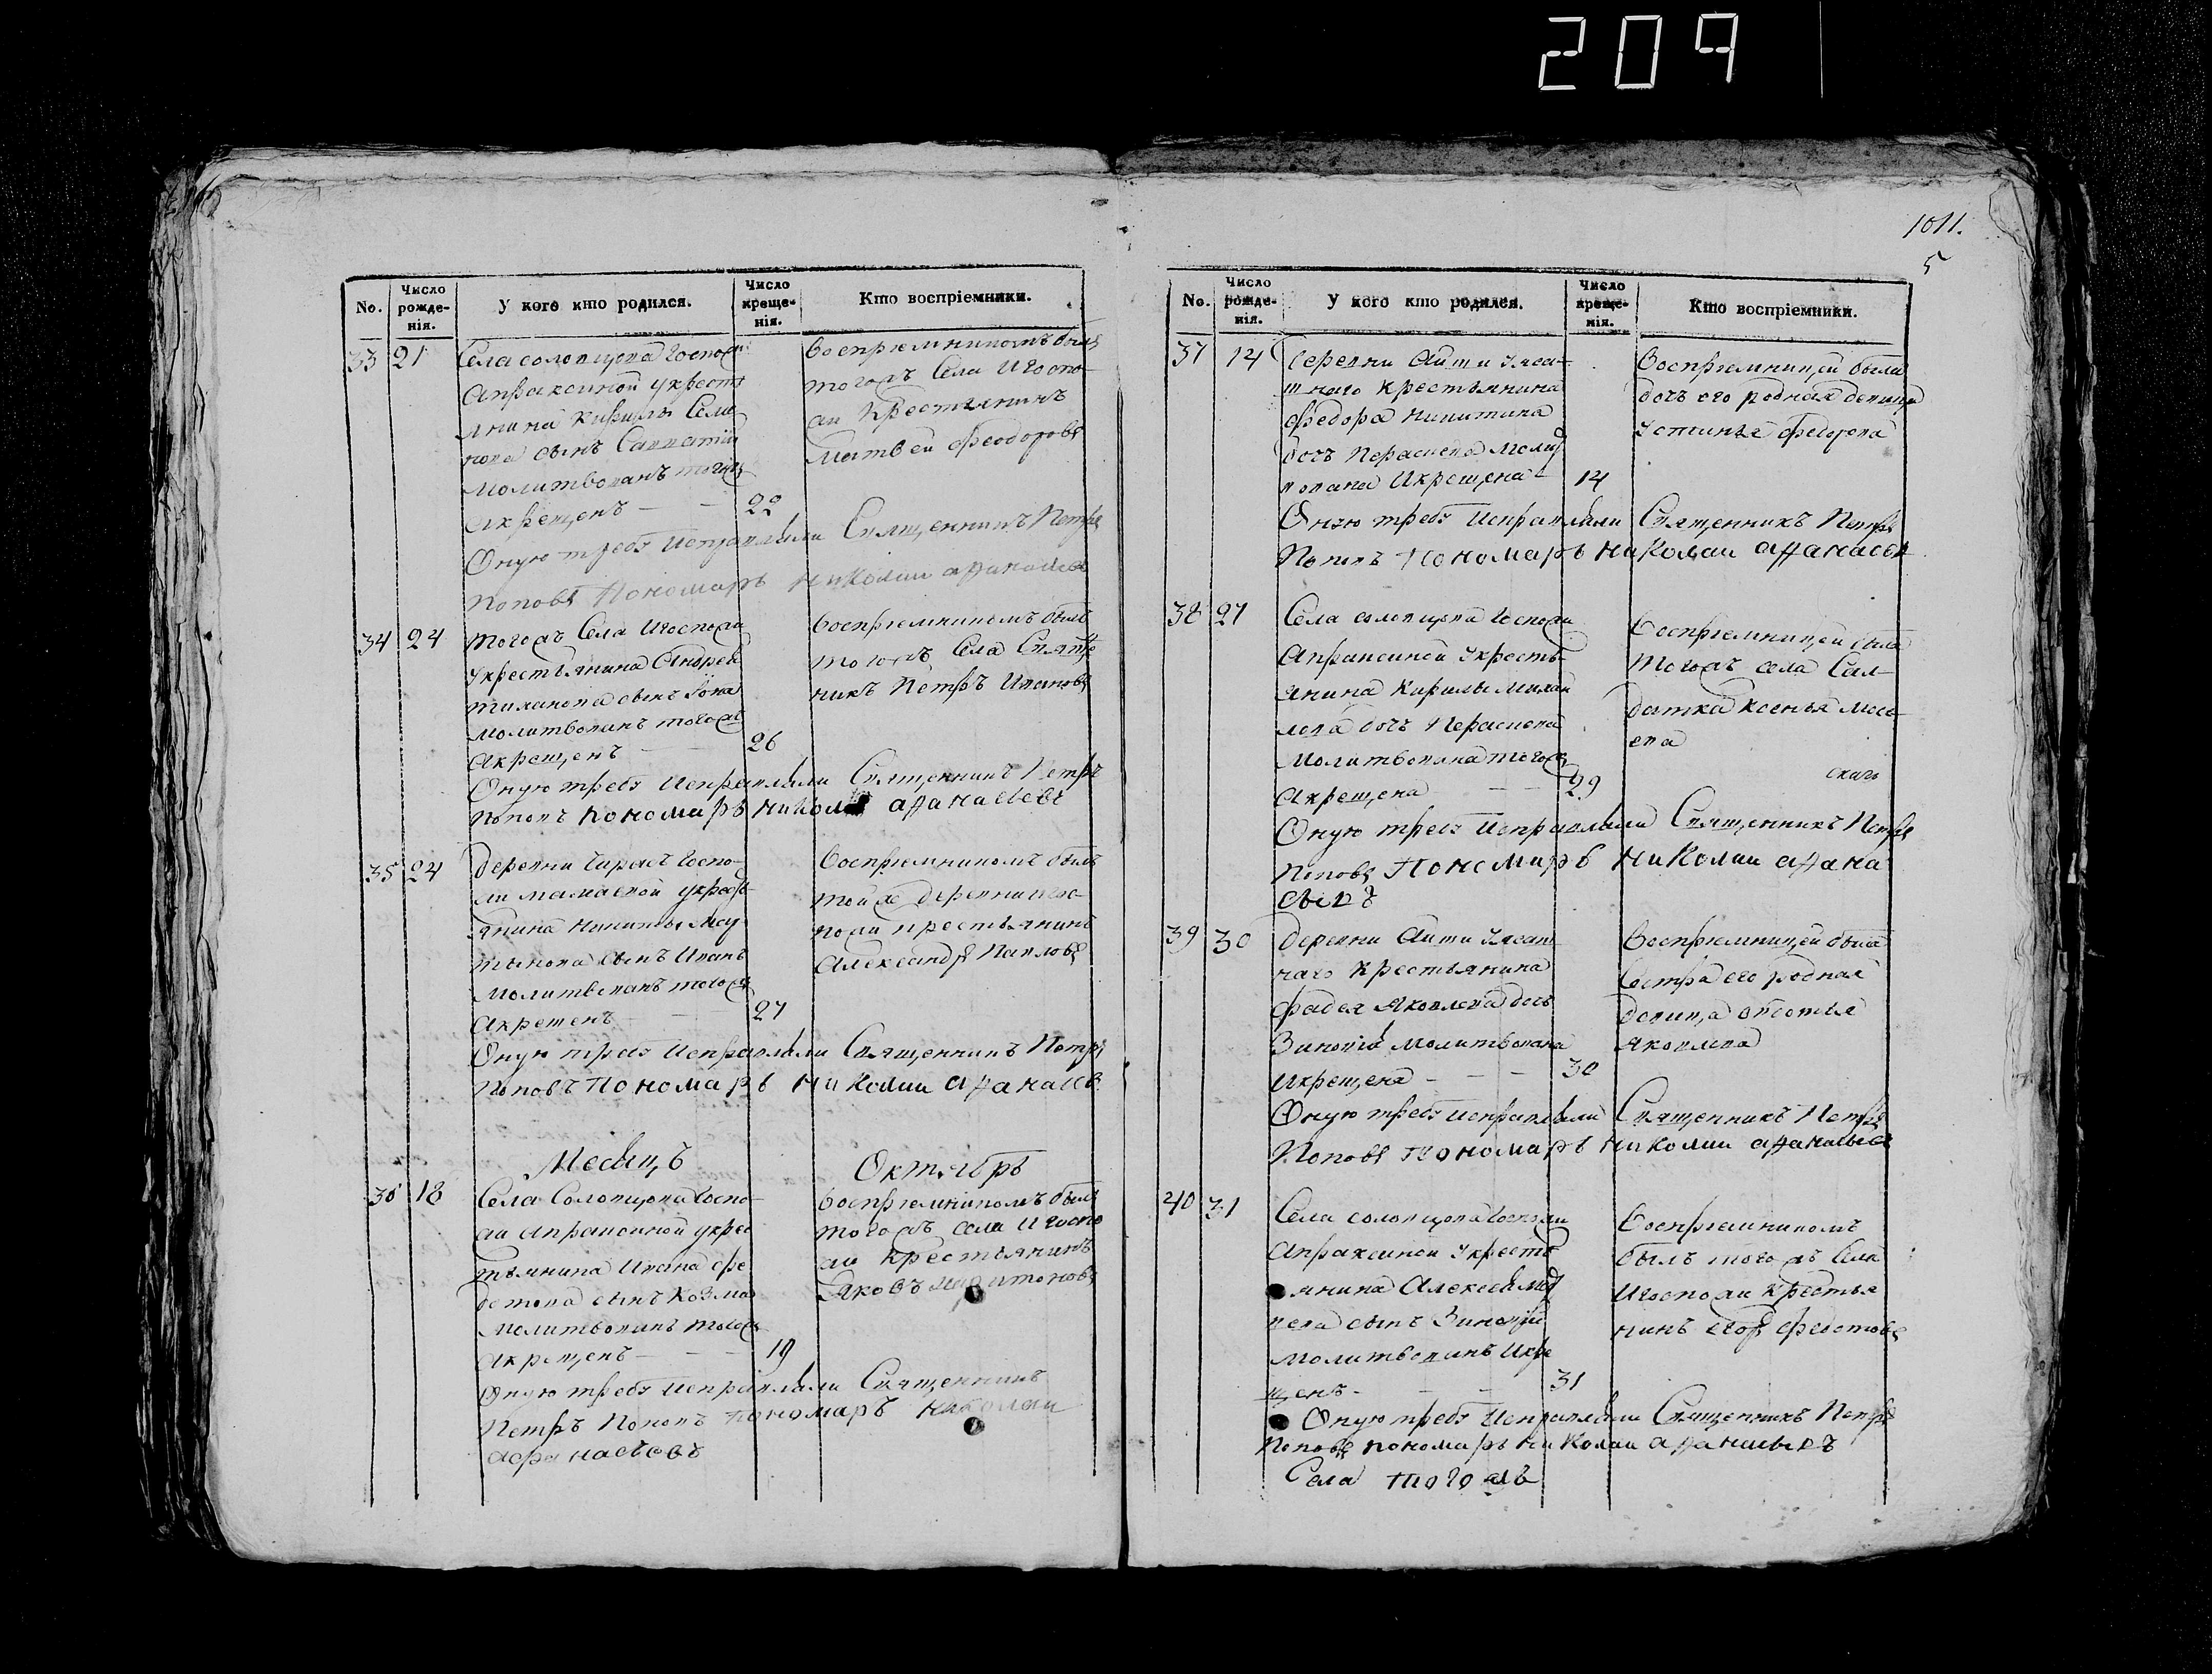 209
1011.
5
No.
Число рожденія.
У кого кто родился.
Число крещенія.
Кто воспріемники.
33 21
Села солопцова Госпожи
Апраксиной укрестя
янина Кирилы Семе
нова сынъ Савватій
Молитвованъ тогож
Акрещенъ — — 22
Воспріемникомъ былъ
тогожъ Села Игоспо
жи Крестьянинъ
Матвей Феодоровъ
Оную требу Исправляли Священникъ Петръ
Поповъ Пономарь Николаи афанасье
34 24
тогожъ Села Игоспожи
укрестьянина Андрея
тиханова сынъ Іона
молитвованъ тогожъ
Акрещенъ — 26
Воспріемникомъ былъ
тогожъ Села Свяще
никъ Петръ Ивановъ
Оную требу Исправляли Священникъ Петръ
Поповъ пономарь никола афанасьевъ
35 24
деревни Госпо-
жи мамаевой укресть
янина Никиты
сынъ Иванъ
Молитвованъ тогож
Акрещенъ — — 27
Воспріемникомъ былъ
тойже деревни игос
пожи крестьянинъ
Александръ Павловъ
Оную требу Исправляли Священникъ Петръ
Поповъ пономарь николаи афанасьев
Месяцъ Октябрь
36 18
Села Солопцова Госпо-
жи апраксиной укрес
тьянина Ивана Фе
дотова сынъ Козма
Молитвованъ тогож
Акрещенъ — — 19
Воспріемникомъ былъ
тогожъ села Игоспо
жи крестьянинъ
Яковъ Харитоновъ
Оную требу исправляли Священникъ
Петръ Поповъ пономаръ николаи
афанасьевъ
No.
Число рожденія.
У кого кто родился.
Число крещенія.
Кто воспріемники.
37 14
деревни Ясаш-
наго Крестьянина
Федора Никитина
дочь Параскева Молит
вована Икрещена — 14
Воспріемницей была
дочъ его родная девица
устинья Федорова
Оную требу Исправляли Священникъ Петръ
Поповъ пономаръ николаи афанасьев
38 27
Села солопцова Госпожи
Апраксиной укресть-
янина Кирилы Михаи
лова дочь Параскева
Молитвована тогож
Акрещена — — 29
Воспріемницей была
тогожъ села Сал-
датка Ксенья Мосе
ева
Оную требу Исправляли Священникъ Петръ
Поповъ Пономаръ николаи афана
сьевъ
39 30
деревни Ясаш
наго Крестьянина
Фадея Яковлева дочь
Зиновія Молитвована
Икрещена — — — 30
Воспріемницей была
Сестра его родная
девица Яковлева
Оную требу исправляли Священникъ Петръ
Поповъ пономаръ николаи афанасьев
40 31
Села солопцова Госпожи
Апраксиной укресть
янина Алексея
сынъ Зиновій
Молитвованъ Икре
щенъ — — — 31
Воспріемникомъ
былъ тогожъ Села
Игоспожи Крестья
нинъ Егоръ Федотовъ
Оную требу Исправляли Священникъ Петръ
Поповъ пономаръ николаи афанасьевъ
Села тогожъ